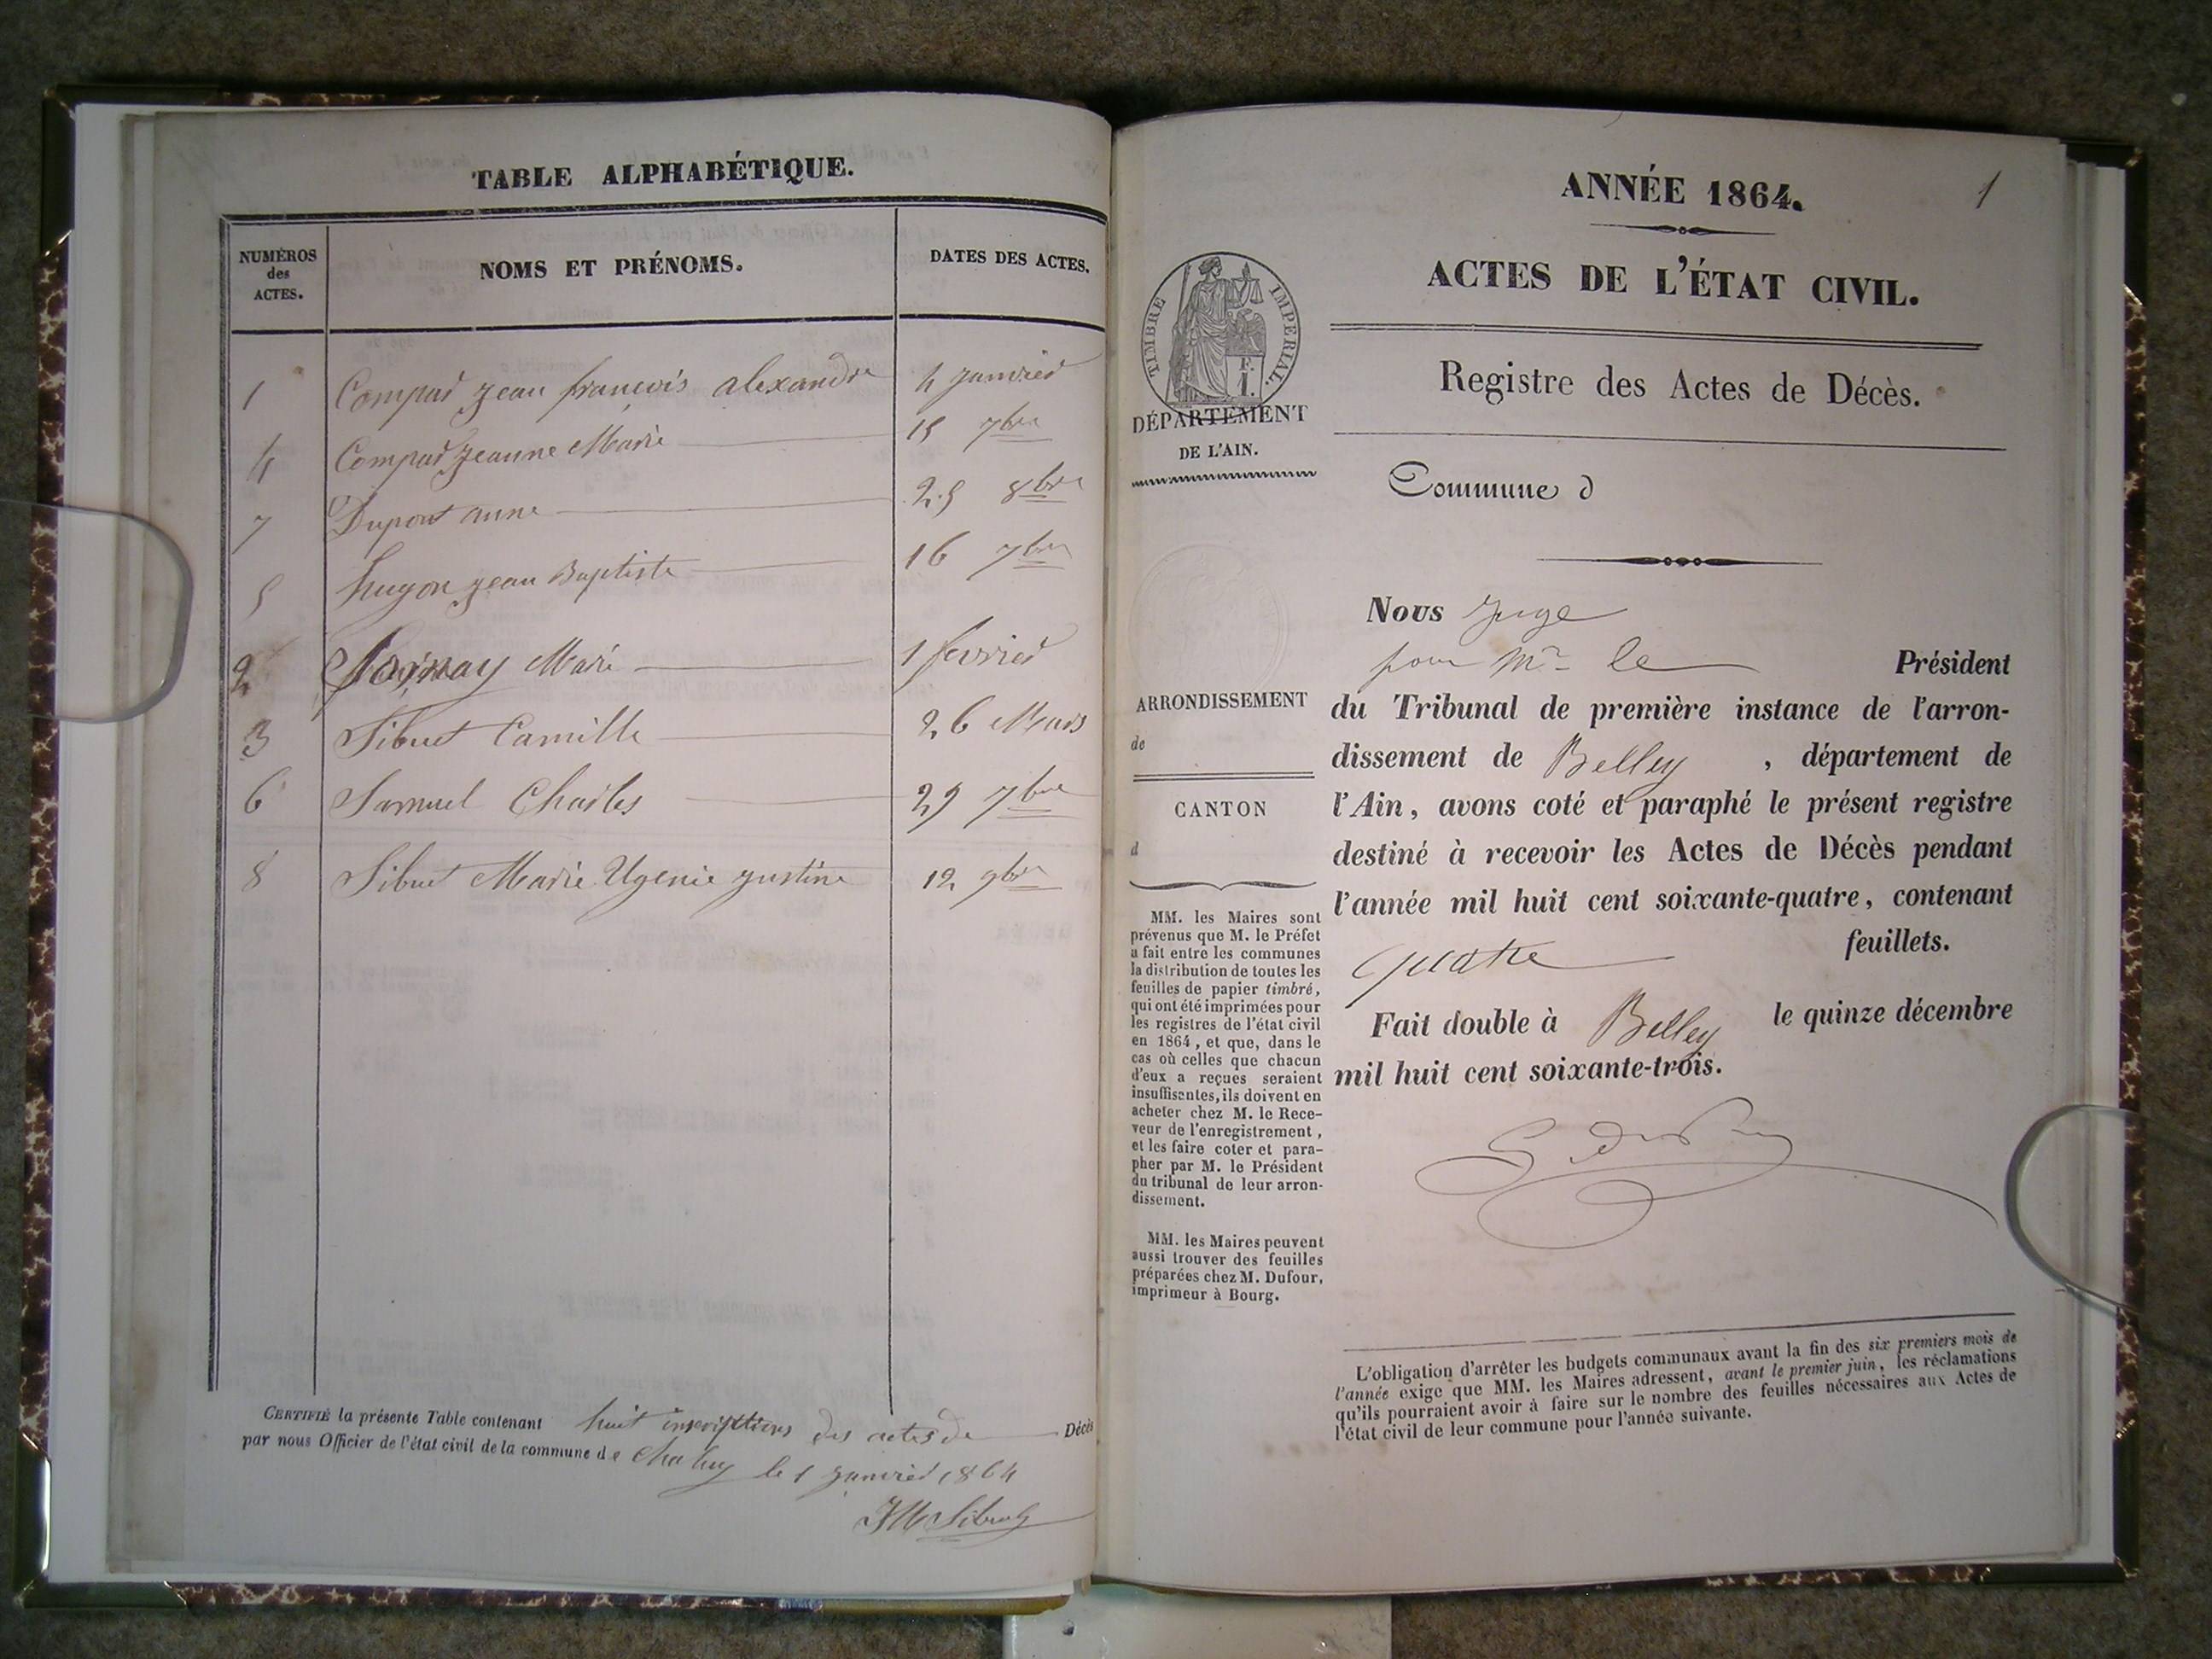 TABLE ALPHABÉTIQUE.
NUMÉROS
des
ACTES.
NOMS ET PRÉNOMS.
DATES DES ACTES.
1 Jean françois alexandre 4 janvier
4 Jeanne Marie 15 7bre
7 Dupont anne 25 8bre
5 hugon jean Baptiste 16 7bre
2 Marie 1 fevrier
3 Sibuet Camille 26 Mars
6 Samuel Charles 29 7bre
8 Sibuet Marie Ugenie justine 12 9bre
CERTIFIÉ la présente Table contenant huit inscriptions des actes de Décès
par nous Officier de l'état civil de la commune de le 1 janvier 1864
1
ANNÉE 1864.
ACTES DE L'ÉTAT CIVIL.
TIMBRE IMPERIAL.
F.
1.
DÉPARTEMENT
DE L'AIN.
Registre des Actes de Décès.
Commune d
ARRONDISSEMENT
de
CANTON
d
MM. les Maires sont
prévenus que M. le Préfet
a fait entre les communes
la distribution de toutes les
feuilles de papier timbré,
qui ont été imprimées pour
les registres de l'état civil
en 1864, et que, dans le
cas où celles que chacun
d'eux a reçues seraient
insuffisantes, ils doivent en
acheter chez M. le Rece-
veur de l'enregistrement,
et les faire coter et para-
pher par M. le Président
du tribunal de leur arron-
dissement.
MM. les Maires peuvent
aussi trouver des feuilles
préparées chez M. Dufour,
imprimeur à Bourg.
Nous Juge
pour Mr le Président
du Tribunal de première instance de l'arron-
dissement de Belley, département de
l'Ain, avons coté et paraphé le présent registre
destiné à recevoir les Actes de Décès pendant
l'année mil huit cent soixante-quatre, contenant
quatre feuillets.
Fait double à Belley le quinze décembre
mil huit cent soixante-trois.
L'obligation d'arrêter les budgets communaux avant la fin des six premiers mois de
l'année exige que MM. les Maires adressent, avant le premier juin, les réclamations
qu'ils pourraient avoir à faire sur le nombre des feuilles nécessaires aux Actes de
l'état civil de leur commune pour l'année suivante.